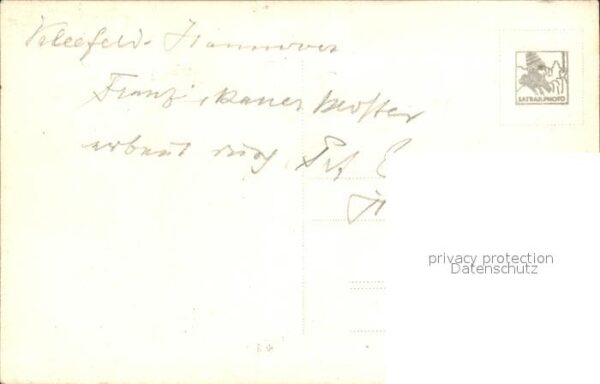 Kleefeld - Hannover
Franziskaner Kloster
erbaut durch
SATRAP-PHOTO
privacy protection
Datenschutz